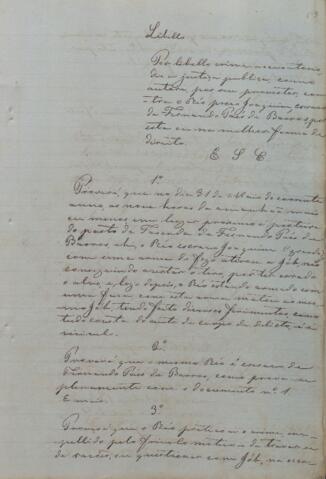 Libello
Por libello crime accusatorio
diz a justiça publica, como
autora por seu promotor, con-
tra o Réo preso Joaquim, escravo
de Fernando Paes de Barros, por
esta ou na melhor forma de
direito.
E. S. C.
1º
Provará, que no dia 31 de Maio do corrente
anno, as nove horas da manhã mais
ou menos em lugar proximo a porteira
do pasto da Fazenda de Fernando Paes de
Barros, o Réo escravo Joaquim
com uma arma de fogo atirou a Job, não
conseguindo
o alvo, e logo depois, o Réo estando armado com
uma faca com esta arma matou ao mes-
mo Job, tendo feito diversos ferimentos, como
tudo consta do auto de corpo de delicto,
2º
Provará que o mesmo Réo é escravo de
Fernando Paes de Barros, como prova-se
plenamente com o documento nº 1
E mais.
3º
Provará que o Réo praticou o crime, im-
pellido pelo frivolo motivo de
de razões, ou questionar com Job, na